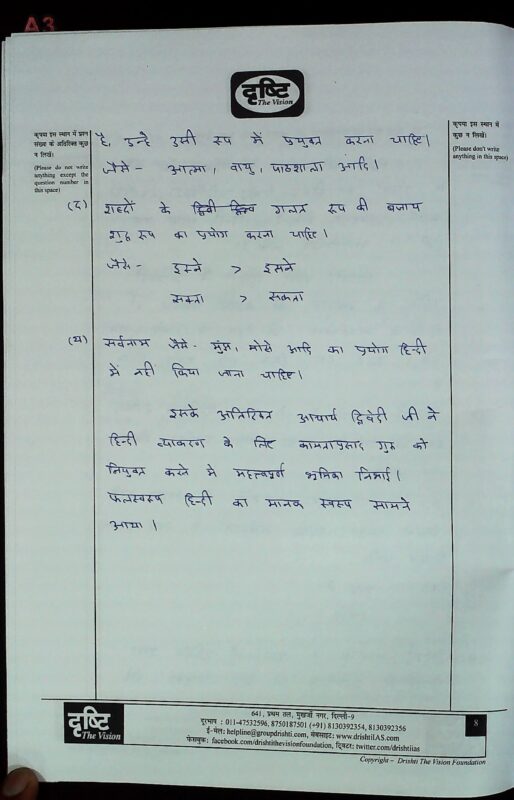 A3
दृष्टि
The Vision
कृपया इस स्थान में प्रश्न
संख्या के अतिरिक्त कुछ
न लिखें।
(Please do not write
anything except the
question number in
this space)
कृपया इस स्थान में
कुछ न लिखें।
(Please don't write
anything in this space)
है, उन्हें उसी रूप में प्रयुक्त करना चाहिए।
जैसे - आत्मा, वायु, पाठशाला आदि।
(द) शब्दों के गलत रूप की बजाय
शुद्ध रूप का प्रयोग करना चाहिए।
जैसे - इस्ने > इसने
सक्ता > सकता
(ध) सर्वनाम जैसे - मुझ, मोसे आदि का प्रयोग हिन्दी
में नहीं किया जाना चाहिए।
इसके अतिरिक्त आचार्य द्विवेदी जी ने
हिन्दी व्याकरण के लिए कामताप्रसाद गुरु को
नियुक्त करने में महत्वपूर्ण भूमिका निभाई।
फलस्वरूप हिन्दी का मानक स्वरूप सामने
आया।
दृष्टि
The Vision
641, प्रथम तल, मुखर्जी नगर, दिल्ली-9
दूरभाष : 011-47532596, 8750187501 (+91) 8130392354, 8130392356
ई-मेल: helpline@groupdrishti.com, वेबसाइट: www.drishtiIAS.com
फेसबुक: facebook.com/drishtithevisionfoundation, ट्विटर: twitter.com/drishtiias
8
Copyright – Drishti The Vision Foundation